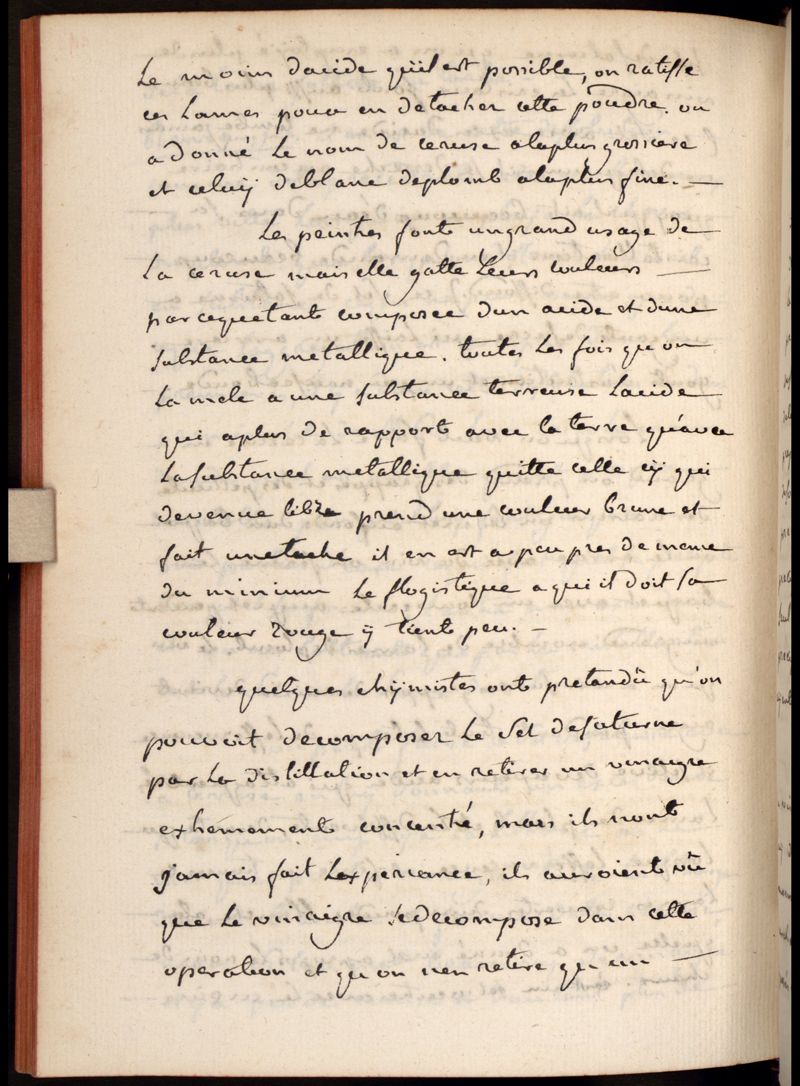 Le moins dacide quil est possible, on ratisse
ces Lames pour en detacher cette poudre. on
a donné Le nom de ceruse alaplus grossiere
et celuÿ deblanc deplomb alaplus fine. —
Les peintres font ungrand usage de
La ceruse mais elle gatte Leurs couleurs —
parcequetant composée dun acide et dune
substance metallique. toutes Les fois qu'on
La mele a une substance terreuse Lacide
qui aplus de rapport avec la terre qu'avec
Lasubstance metallique quitte celle cÿ qui
devenue libre prend une couleur brune et
fait unetache il en est a peu pres de meme
du minium Le flogistique a qui il doit sa
couleur rouge ÿ tient peu. —
quelques chÿmistes ont pretendû qu'on
pouvoit decomposer Le Sel desaturne
par La distillation et en retirer un vinaigre
extremement concentré, mais ils nont
jamais fait Lexperiance, ils auroient vû
que Le vinaigre Sedecompose dans cette
operation et qu'on n'en retire qu'un —